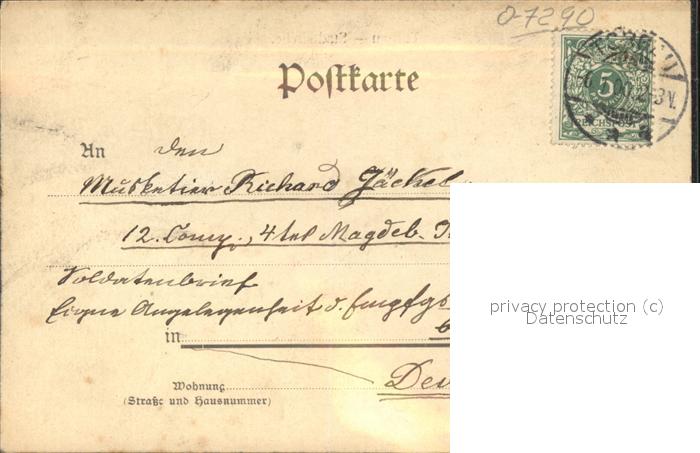 0-7290
5
REICHSPOST
Postkarte
An den
Musketier Richard Jäckel
12. Comp., 4tes Magdeb.
Soldatenbrief
Eigne Angelegenheit d. Empfgs
in
Wohnung
(Straße und Hausnummer)
privacy protection (c)
Datenschutz